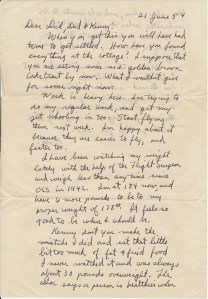 21 June 54
Dear Sid, Dad & Kenny:
When you get this you will have had
time to get settled. How have you found
everything at the cottage? I suppose that
you are eating some nice golden brown
lake trout by now. What I wouldn't give
for some right now.
Work is heavy here. Am trying to
do my regular work, and get my
jet schooling in too. Start flying
them next week. I'm happy about it
because they are easier to fly, and
faster too.
I have been watching my weight
lately with the help of the Flight Surgeon
and weigh less than anytime since
OCS in 1942. I'm at 184 now and
have 9 more pounds to be to my
proper weight of 175#. It feels so
good to be where I should be.
Kenny don't you make the
mistake I did and eat that little
bit too much of fat & fried food
I never watched it and was always
about 30 pounds overweight. The
doc says a person is healthier when